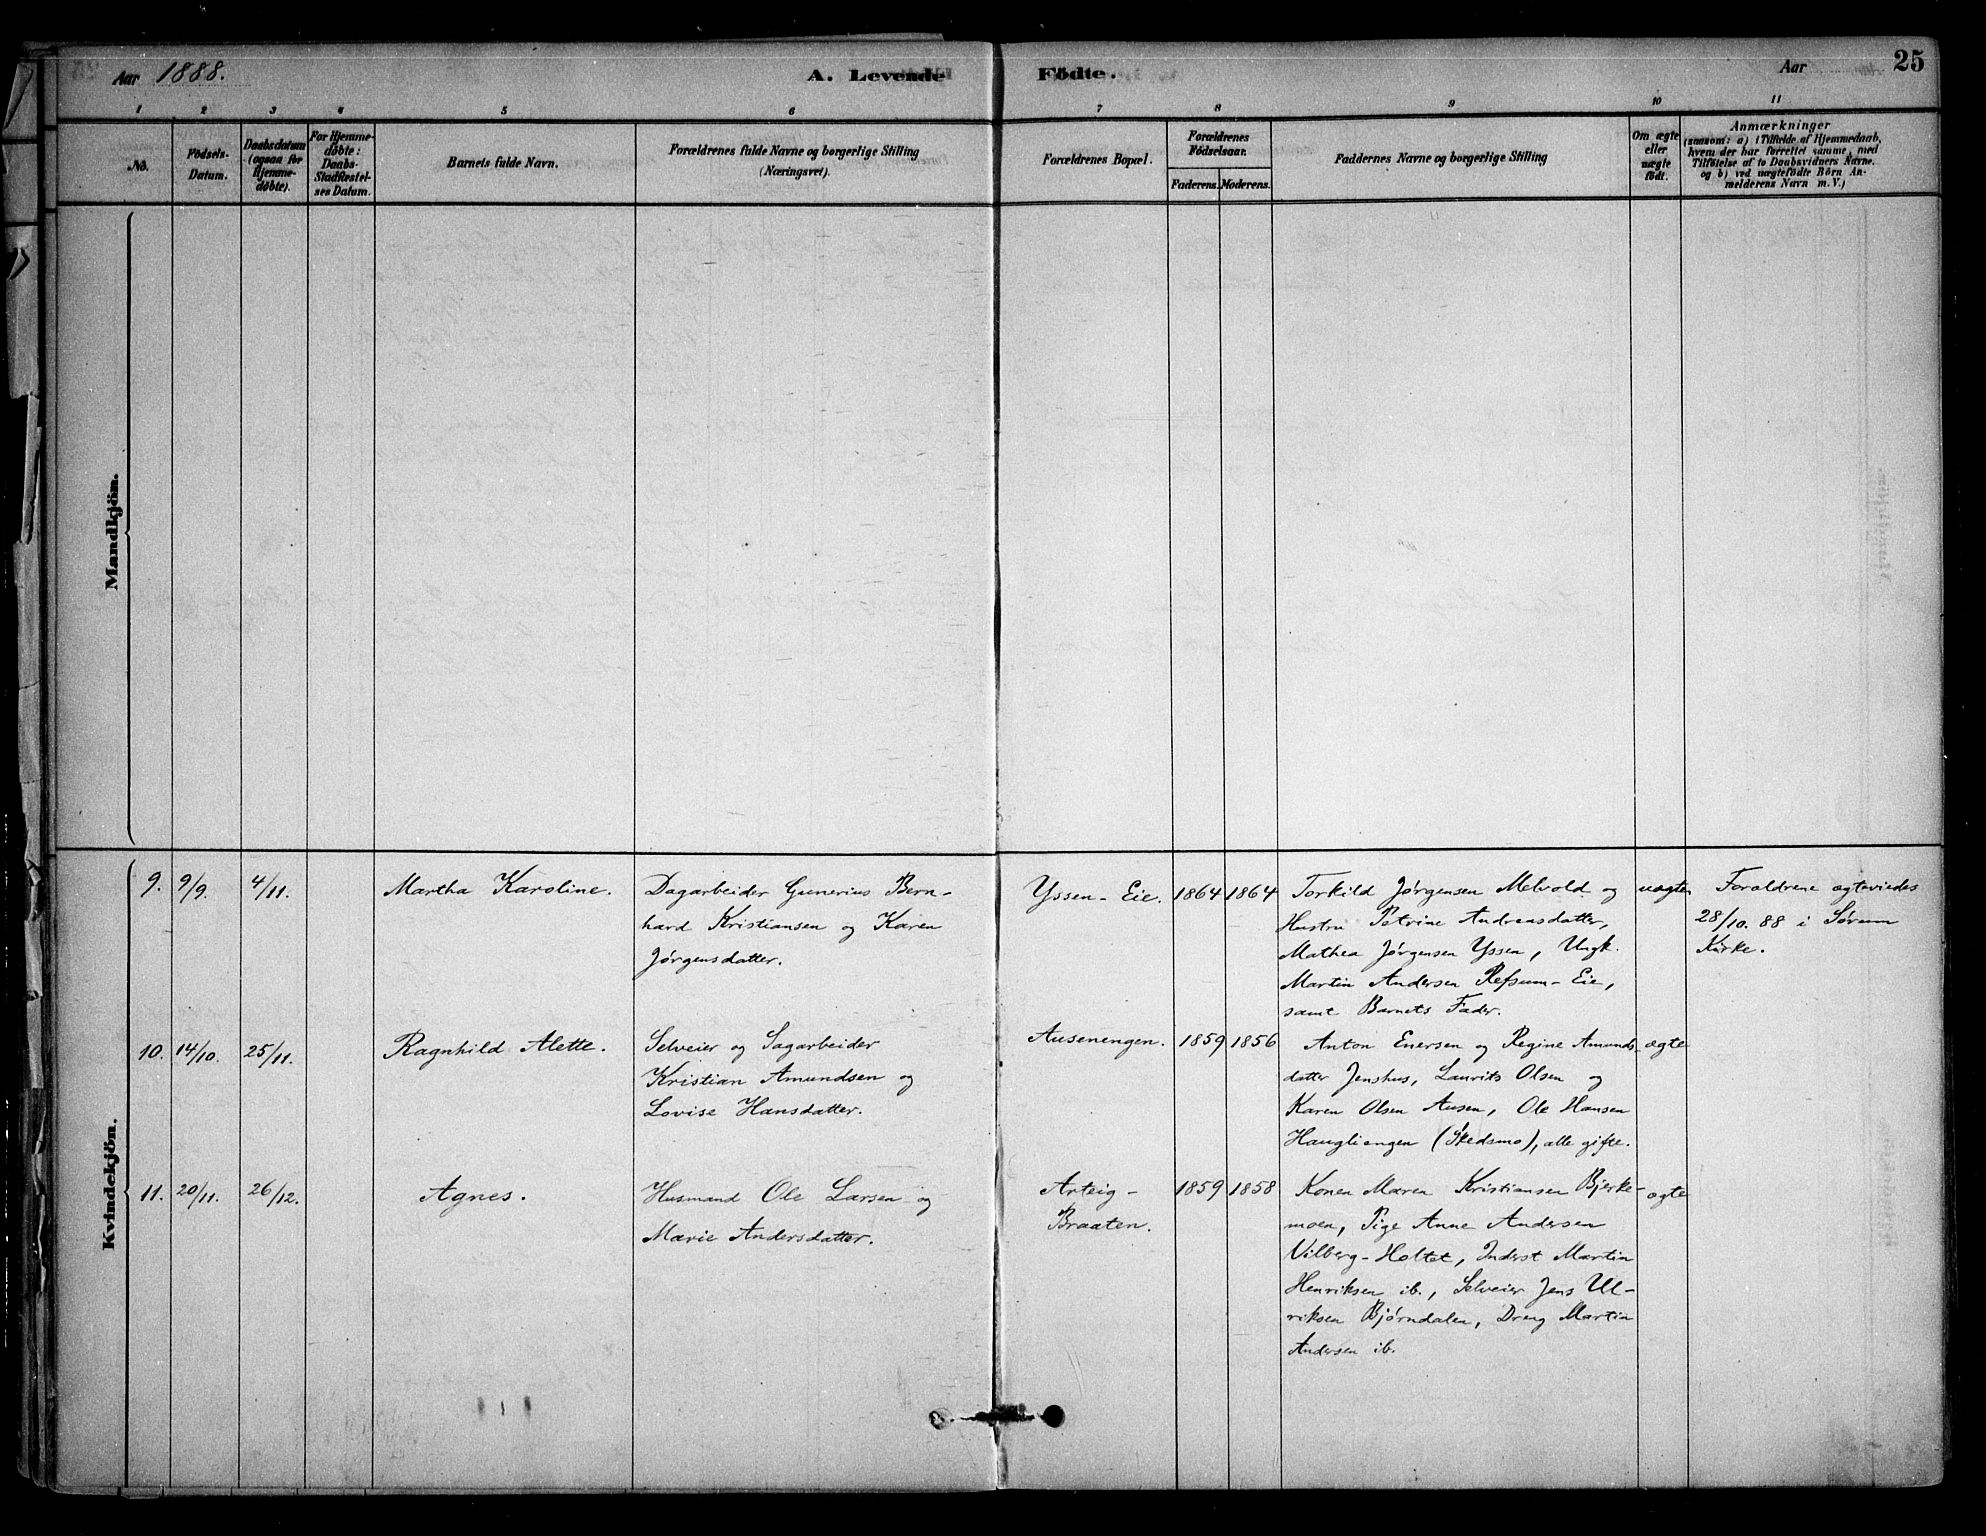 Aar 1888.
A. Levende
Födte.
Aar
25
1
2
3
4
5
6
7
8
9
10
11
No.
Födsels-
Datum.
Daabsdatum
(ogsaa for
Hjemme-
døbte).
For Hjemme-
døbte:
Daabs-
Stadfæstel-
ses Datum.
Barnets fulde Navn.
Forældrenes fulde Navne og borgerlige Stilling
(Næringsvei).
Forældrenes Bopæl.
Forældrenes
Födselsaar.
Faderens.
Moderens.
Faddernes Navne og borgerlige Stilling
Om ægte
eller
uægte
födt.
Anmærkninger
(saasom: a) i Tilfælde af Hjemmedaab,
hvem der har forrettet samme, med
Tilföielse af to Daabsvidners Navne.
og b) ved uægtefödte Börn An-
melderens Navn m. V.)
Mandkjön.
Kvindekjön.
9.
9/9.
4/11.
Martha Karoline.
Dagarbeider Gunerius Bern-
hard Kristiansen og Karen
Jørgensdatter.
Yssen-Eie.
1864
1864
Torkild Jørgensen Melvold og
Hustru Petrine Andreasdatter,
Mathea Jørgensen Yssen, Ungk.
Martin Andersen Refsum-Eie,
samt Barnets Fader.
uægte
Forældrene ægteviedes
28/10. 88 i Sørum
Kirke.
10.
14/10.
25/11.
Ragnhild Alette.
Selveier og Sagarbeider
Kristian Amundsen og
Lovise Hansdatter.
Ausenengen.
1859
1856
Anton Enersen og Regine Amunds-
datter Jenshus, Laurits Olsen og
Karen Olsen Ausen, Ole Hansen
Haugliengen (Skedsmo), alle gifte.
ægte
11.
20/11.
26/12.
Agnes.
Husmand Ole Larsen og
Marie Andersdatter.
Arteig-
Braaten.
1859
1858
Konen Maren Kristiansen Bjerke-
moen, Pige Anne Andersen
Vilberg-Holtet, Inderst Martin
Henriksen ib., Selveier Jens Ul-
riksen Bjørndalen, Dreng Martin
Andersen ib.
ægte